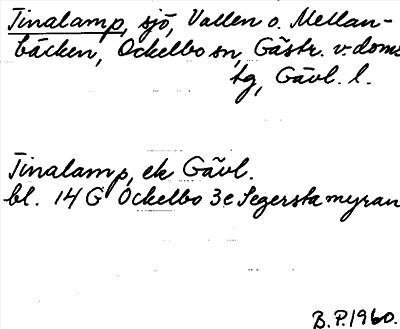 Tinalamp, sjö, Vallen o. Mellan-
bäcken, Ockelbo sn, Gästr. v. doms
tg, Gävl. l.
Tinalamp, ek Gävl.
bl. 14 G Ockelbo 3e Segersta myran
B.P. 1960.